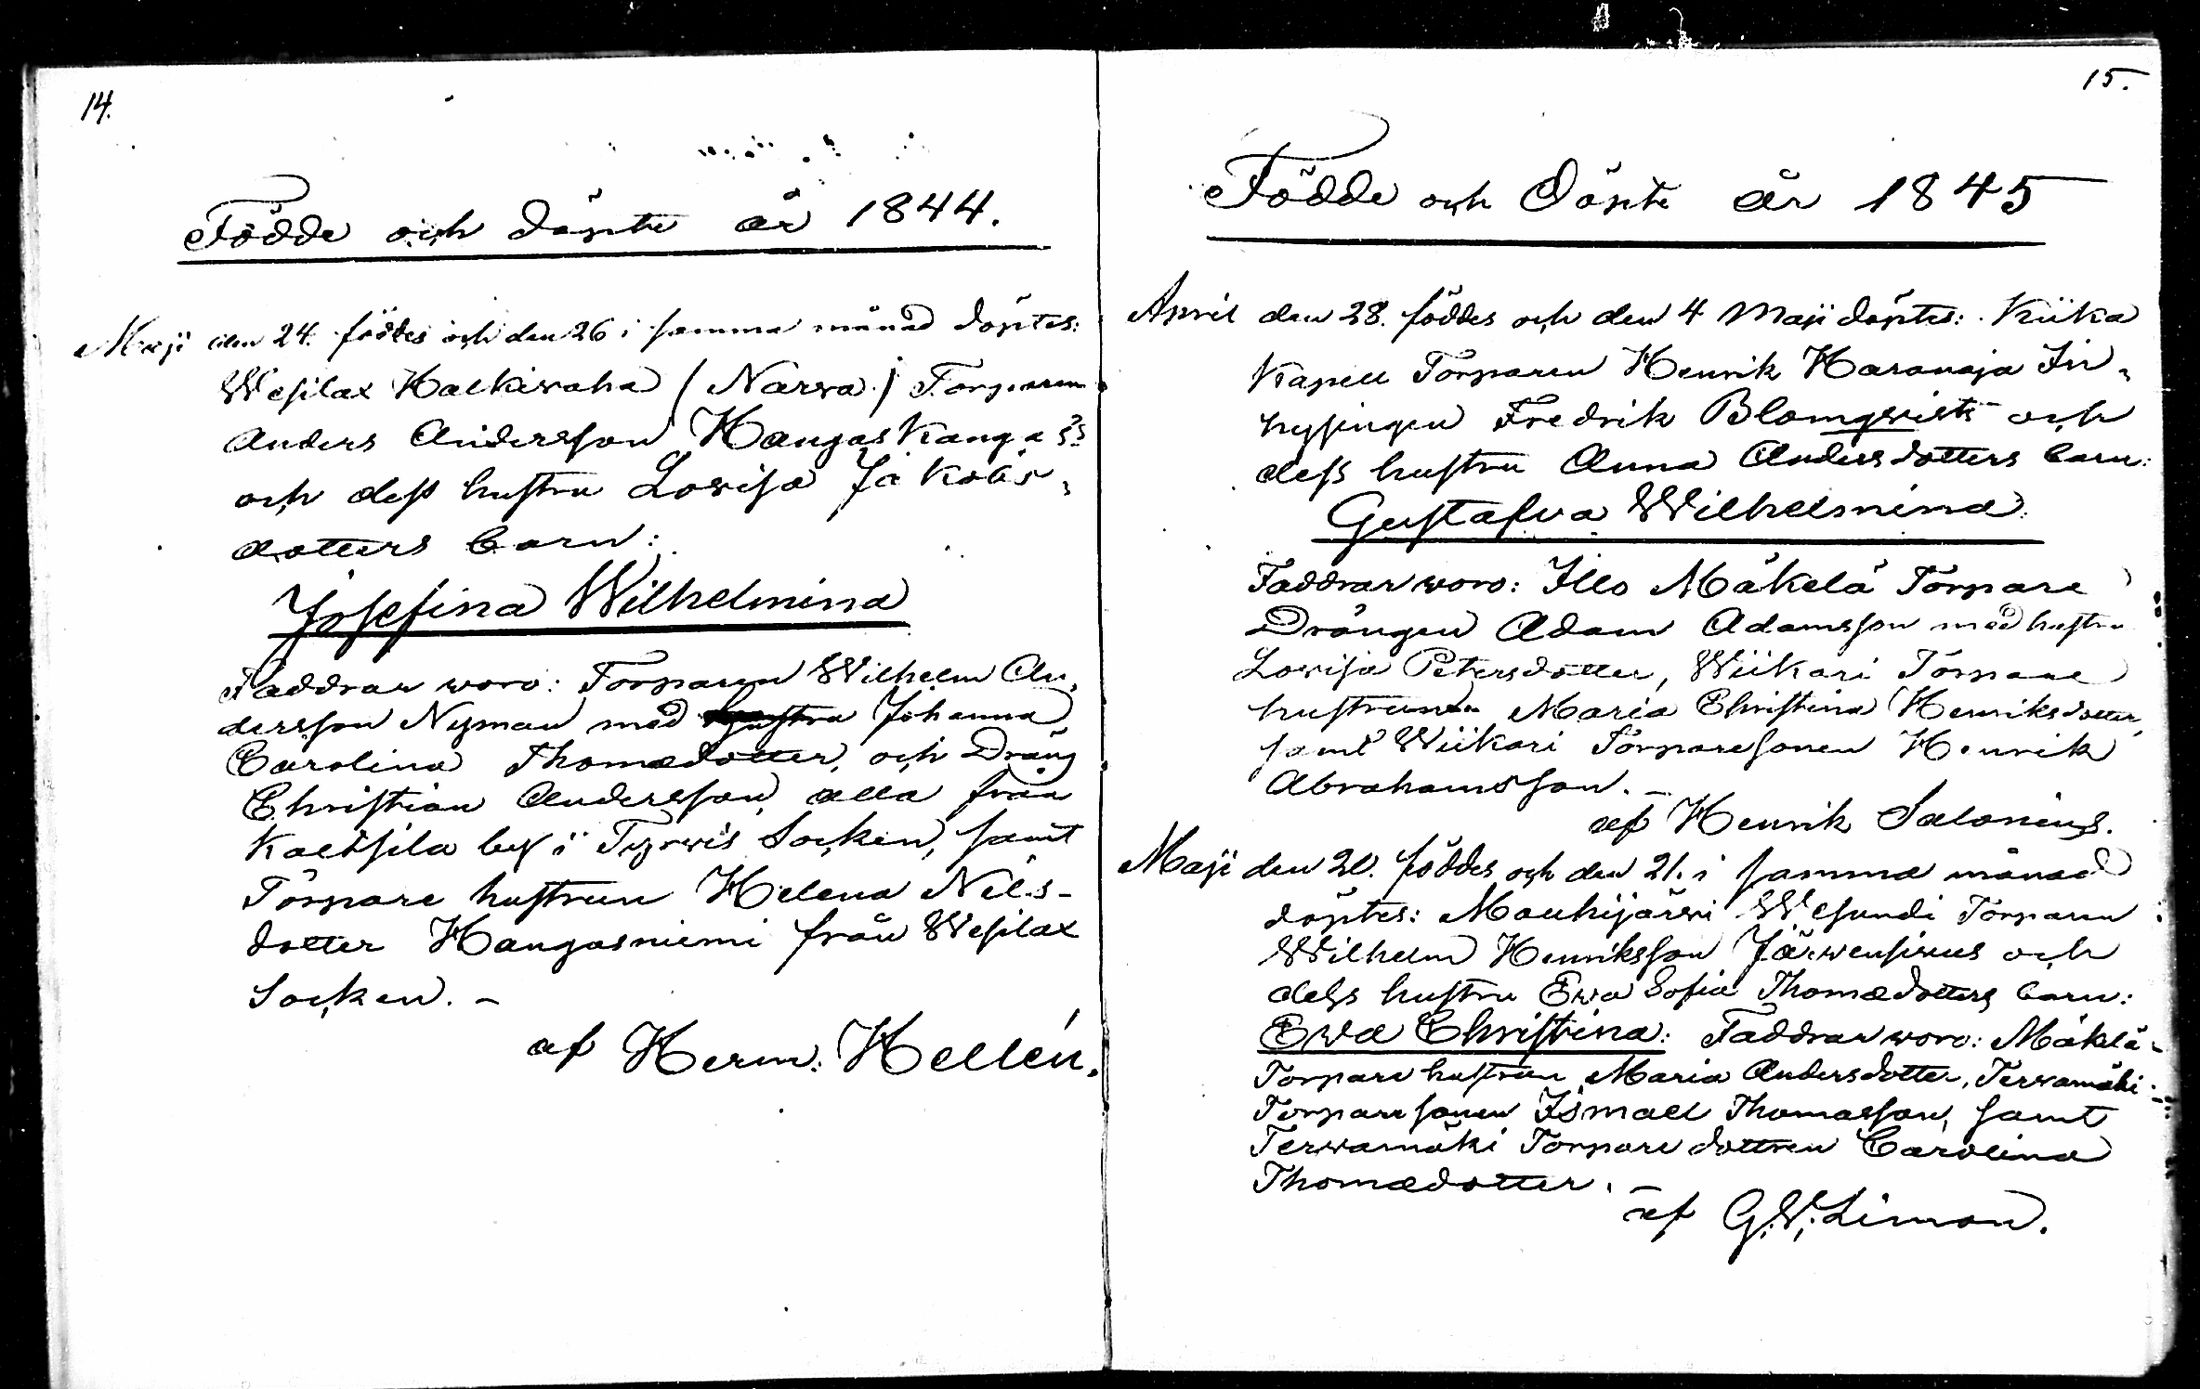 14.
Födde och döpte år 1844.
Maji den 24. föddes och den 26 i samma månad döptes:
Wesilax Halkivaha (Narva) Torparen
Anders Andersson Hangaskangas
och dess hustru Lovisa Jakobs-
dotters barn:
Josefina Wilhelmina
Faddrar woro: Torparen Wilhelm An-
dersson Nyman med hustru Johanna
Carolina Thomædotter, och Dräng
Christian Andersson alla från
Kaltsila by i Tyrwis Socken, samt
Torpare hustrun Helena Nils-
dotter Hangasniemi från Wesilax
Socken. -
af Herm: Hellén.
15.
Födde och Döpte år 1845
April den 28. föddes och den 4 Maji döptes: Kiika
Kapell Torparen Henrik Haranaja In-
hysingen Fredrik Blomqvists och
dess hustru Anna Andersdotters barn:
Gustafva Wilhelmina.
Faddrar woro: Illo Mäkelä Torpare
Drängen Adam Adamsson med hustru
Lovisa Petersdotter, Wiikari Torpare
hustrun Maria Christina Henriksdotter,
samt Wiikari Torparesonen Henrik
Abrahamsson. -
af Henrik Salonius.
Maji den 20. föddes och den 21. i samma månad
döptes: Mouhijärwi Wesundi Torparen
Wilhelm Henriksson Järwensivus och
dess hustru Ewa Sofia Thomædotters barn:
Ewa Christina: Faddrar woro: Mäkelä-
Torpare hustrun Maria Andersdotter, Terwamäki-
Torparesonen Ismael Thomasson, samt
Terwamäki Torpare dottren Carolina
Thomædotter. -
af G. V. Limon.